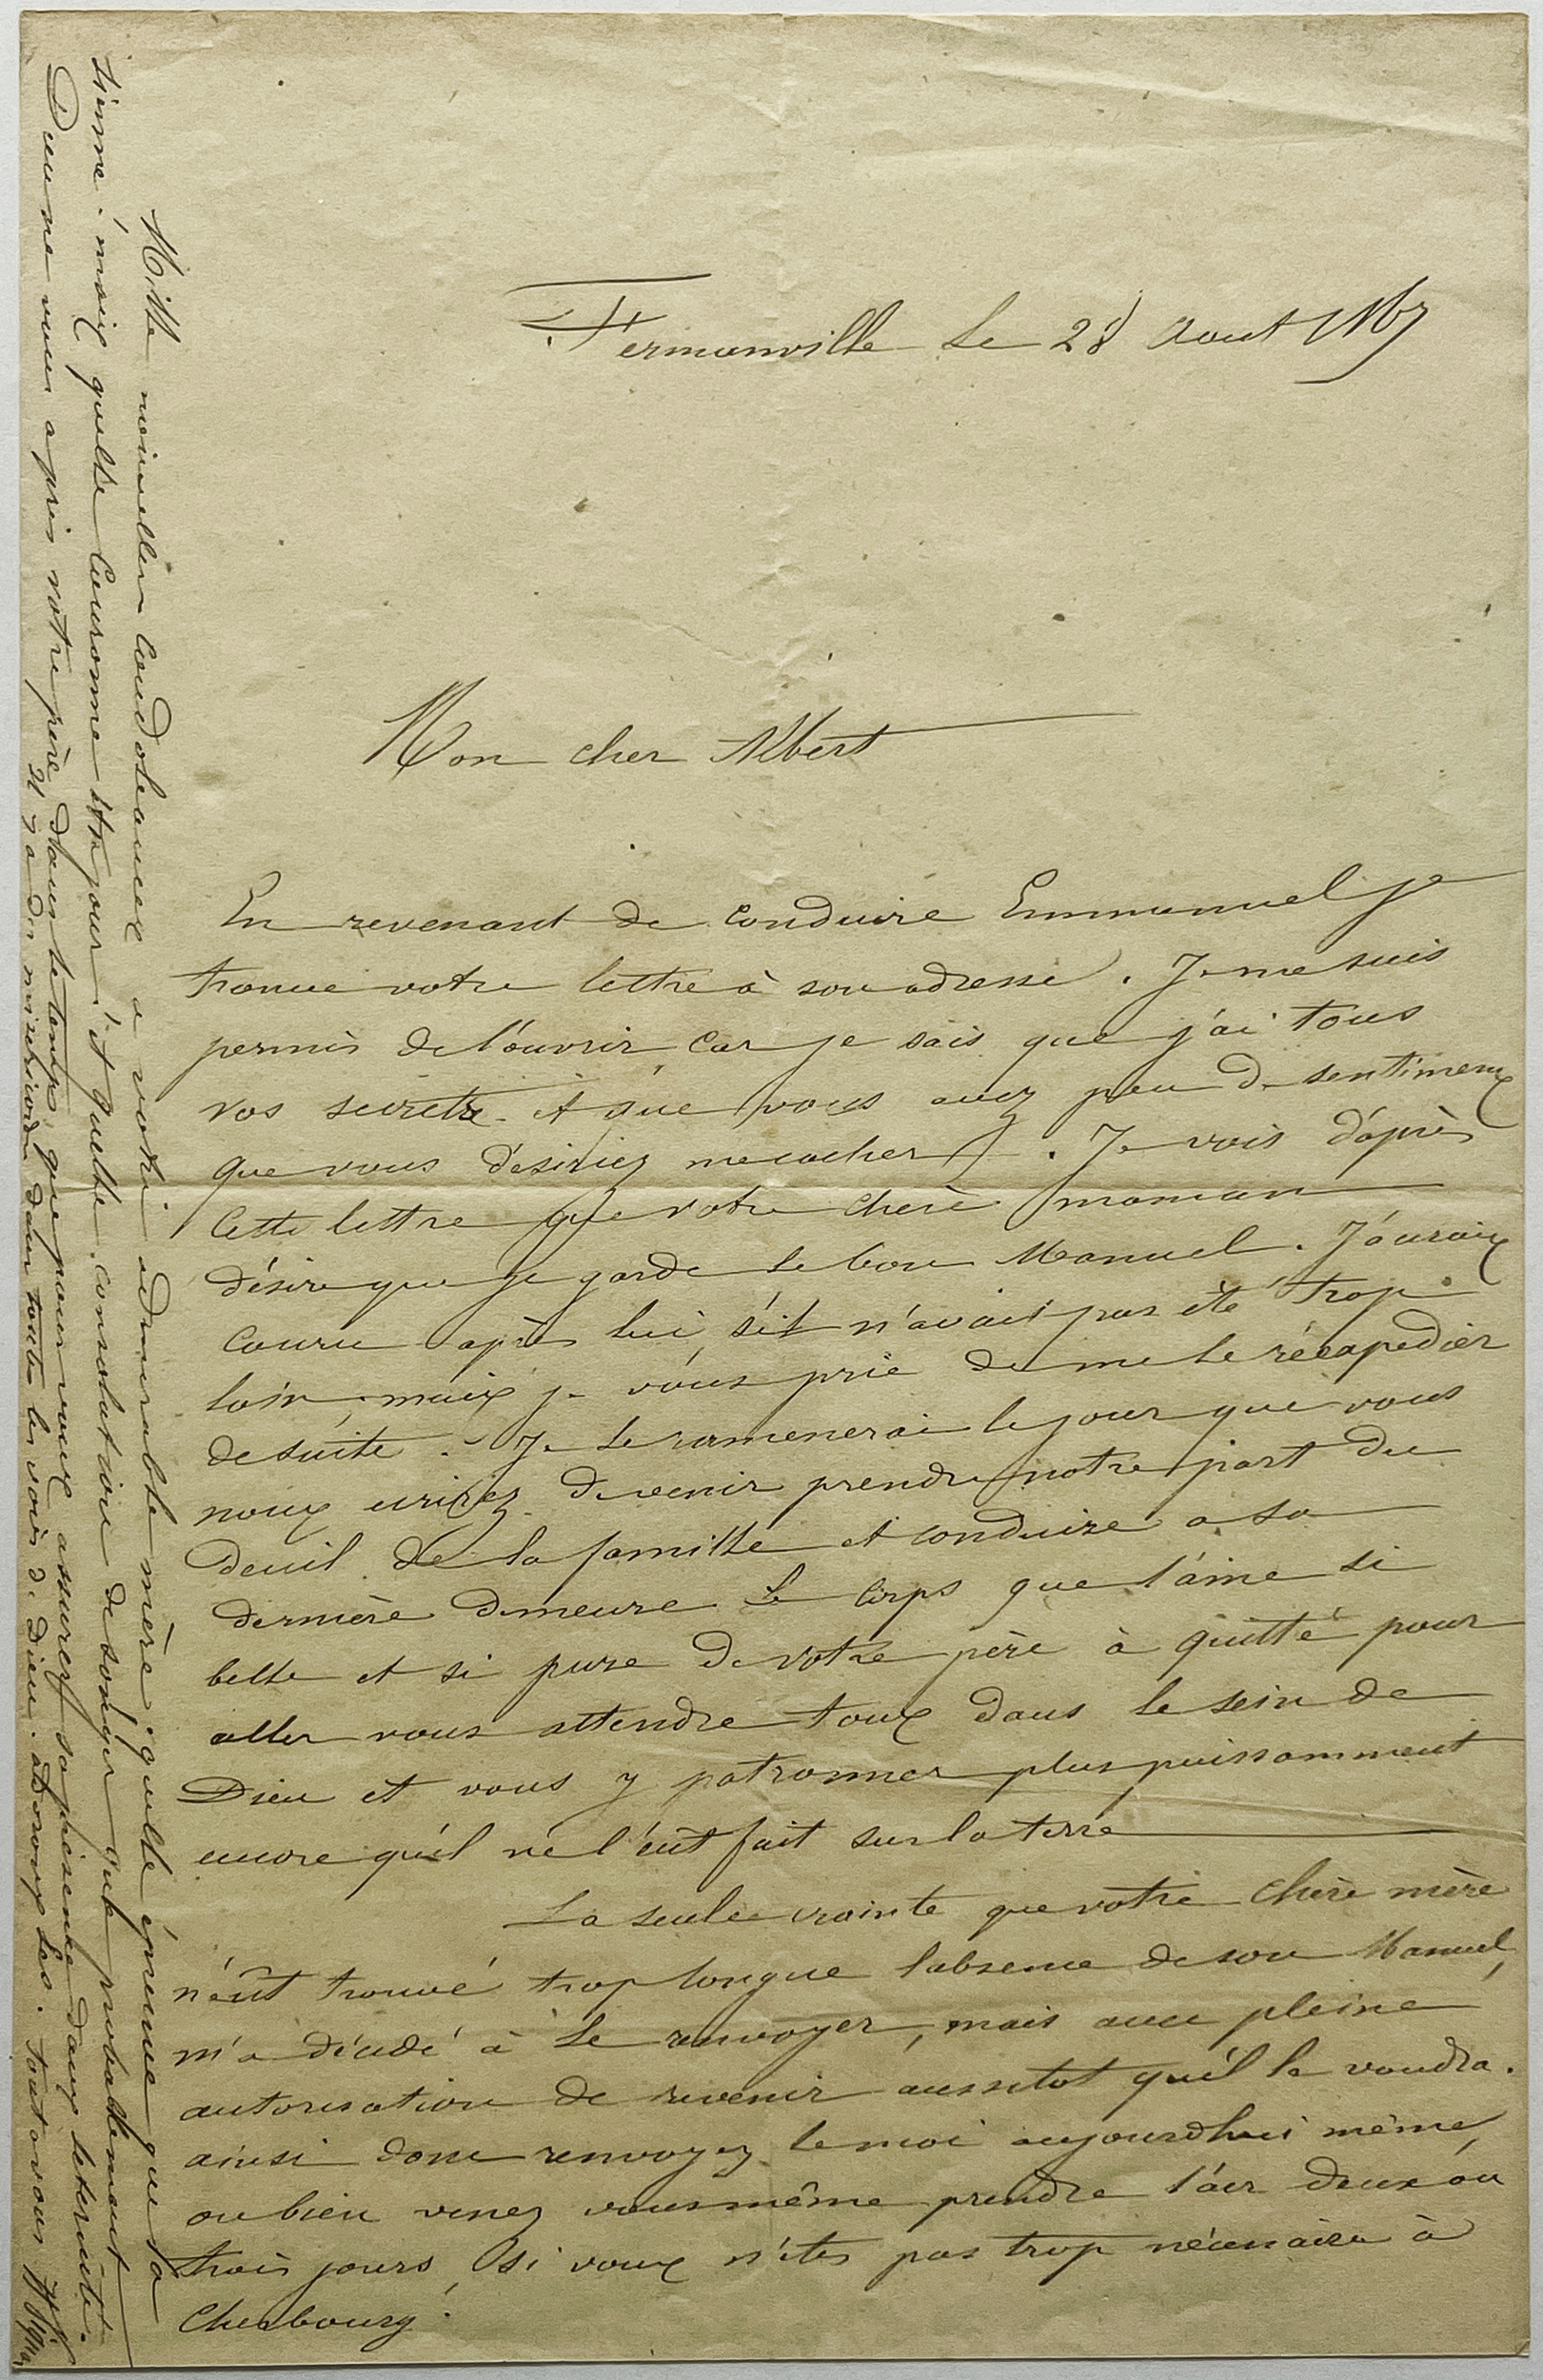 Fermanville le 28 Aout 1867
Mon cher Albert
En revenant de conduire Emmanuel je
trouve votre lettre à son adresse. Je me suis
permis de l'ouvrir, car je sais que j'ai tous
vos secrets et que vous avez peu de sentimens
que vous désiriez me cacher. Je vois d'après
cette lettre que votre chère maman
désire que je garde le bon Manuel. J'aurais
couru après lui s'il n'avait pas été trop
loin, mais je vous prie de me le réexpedier
de suite. Je le ramenerai le jour que vous
nous ecrirez de venir prendre notre part du
deuil de la famille et conduire a sa
dernière demeure le corps que l'ame si
belle et si pure de votre père à quitté pour
aller vous attendre tous dans le sein de
Dieu et vous y patronner plus puissamment
encore qu'il ne l'eût fait sur la terre
La seule crainte que votre chère mère
n'eût trouvé trop longue l'absence de son Manuel,
m'a décidé à le renvoyer, mais avec pleine
autorisation de revenir aussitot qu'il le voudra.
ainsi donc renvoyez le moi aujourdhui même,
ou bien venez vous même prendre l'air deux ou
trois jours, si vous n'êtes pas trop nécessaire à
Cherbourg.
Mille nouvelles condoleances a votre admirable mère. quelle épreuve que la
sienne. mais quelle couronne un jour! et quelle consolation de songer que probablement
Dieu ne vous a pris votre père dans le temps que pour vous assurer sa présence dans l'eternité.
Il y a des misericordes dans toutes les voies de Dieu. adorons les. Tout a vous